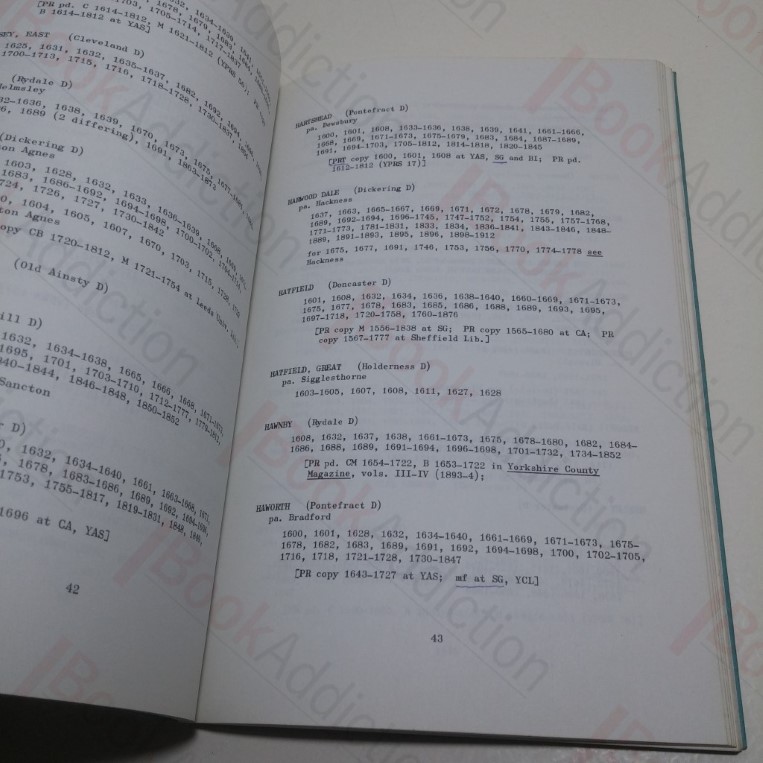 [PR pd. C 1614-1812, M 1621-1812 (YPRS
B 1614-1812 at YAS]
EY, EAST (Cleveland D)
1625, 1631, 1632, 1635-1637, 1682, 1692,
1700-1713, 1715, 1716, 1718-1728,
(Rydale D)
elmsley
32-1636, 1638, 1639, 1670, 1673, 1675,
6, 1689 (2 differing), 1691,
(Dickering D)
on Agnes
1603, 1628, 1632, 1633, 1636-1639,
1683, 1686-1692, 1694-1698, 1700-1702,
724, 1726, 1727, 1730-1842
0, 1604, 1605, 1607, 1670, 1703, 1715,
ton Agnes
opy CB 1720-1812, M 1721-1754 at Leeds Univ.
(Old Ainsty D)
ill D)
1632, 1634-1638, 1665, 1666, 1668, 1671-1673,
1695, 1701, 1703-1710, 1712-1777,
840-1844, 1846-1848, 1850-1852
Sancton
- D)
0, 1632, 1634-1640, 1661, 1663-1668,
, 1678, 1683-1686, 1689, 1692, 1694-1698,
1753, 1755-1817, 1819-1831,
1696 at CA, YAS]
42
HARTSHEAD (Pontefract D)
pa. Dewsbury
1600, 1601, 1608, 1633-1636, 1638, 1639, 1641, 1661-1666,
1668, 1669, 1671-1673, 1675-1679, 1683, 1684, 1687-1689,
1691, 1694-1703, 1705-1812, 1814-1818, 1820-1845
[PRT copy 1600, 1601, 1608 at YAS, SG and BI; PR pd.
1612-1812 (YPRS 17)]
HARWOOD DALE (Dickering D)
pa. Hackness
1637, 1663, 1665-1667, 1669, 1671, 1672, 1678, 1679, 1683,
1689, 1692-1694, 1696-1745, 1747-1752, 1754, 1755, 1757-1768,
1771-1773, 1781-1831, 1833, 1834, 1836-1841, 1843-1846, 1848-
1889, 1891-1893, 1895, 1896, 1898-1912
for 1675, 1677, 1691, 1746, 1753, 1756, 1770, 1774-1778 see
Hackness
HATFIELD (Doncaster D)
1601, 1608, 1632, 1634, 1636, 1638-1640, 1660-1669, 1671-1673,
1675, 1677, 1678, 1683, 1685, 1686, 1688, 1689, 1693, 1695,
1697-1718, 1720-1758, 1760-1876
[PR copy M 1556-1838 at SG; PR copy 1565-1680 at CA; PR
copy 1567-1777 at Sheffield Lib.]
HATFIELD, GREAT (Holderness D)
pa. Sigglesthorne
1603-1605, 1607, 1608, 1611, 1627, 1628
HAWNBY (Rydale D)
1608, 1632, 1637, 1638, 1661-1673, 1675, 1678-1680, 1682, 1684-
1686, 1688, 1689, 1691-1694, 1696-1698, 1701-1732, 1734-1852
[PR pd. CM 1654-1722, B 1653-1722 in Yorkshire County
Magazine, vols. III-IV (1893-4);
HAWORTH (Pontefract D)
pa. Bradford
1600, 1601, 1628, 1632, 1634-1640, 1661-1669, 1671-1673, 1675-
1678, 1682, 1683, 1689, 1691, 1692, 1694-1698, 1700, 1702-1705,
1716, 1718, 1721-1728, 1730-1847
[PR copy 1643-1727 at YAS; mf at SG, YCL]
43
BookAddiction